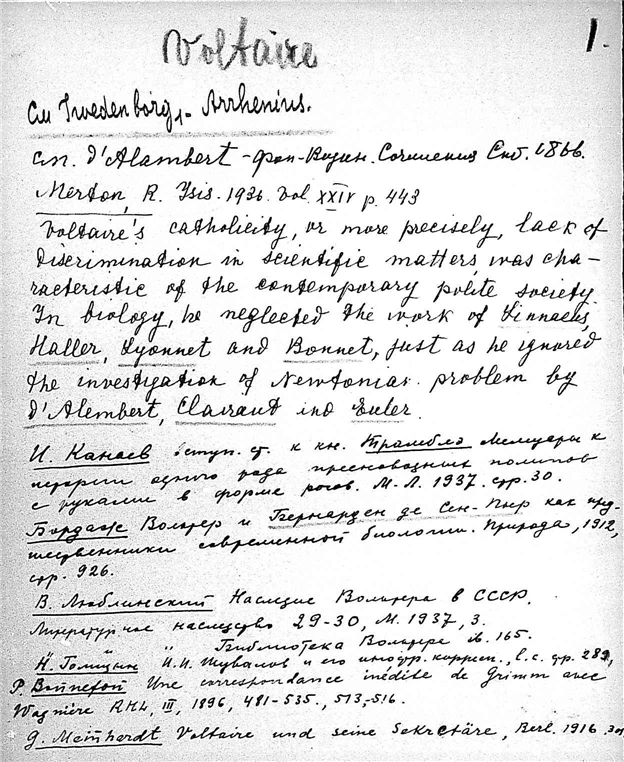 Voltaire
1.
см Swedenborg, - Arrhenius.
см. d'Alambert - Фон-Визин. Сочинения Спб. 1866.
Merton, R. Isis. 1936. Vol. XXIV p. 443
Voltaire's catholicity, or more precisely, lack of
discrimination in scientific matters, was cha-
racteristic of the contemporary polite society
In biology, he neglected the work of Linnaeus,
Haller, Lyonnet and Bonnet, just as he ignored
the investigation of Newtonian problem by
d'Alembert, Clairaut and Euler.
И. Канаев вступ. ст. к кн. Трамбле Мемуары к
истории одного рода пресноводных полипов
с руками в форме рогов. М-Л. 1937. стр. 30.
Бордаж Вольтер и Бернарден де Сен-Пьер как пред-
шественники современной биологии. Природа, 1912,
стр. 926.
В. Люблинский Наследие Вольтера в СССР.
Литературное наследство 29-30, М. 1937, 3.
" Библиотека Вольтера 165.
Н. Голицын И.И. Шувалов и его иностр. корресп., l.c. стр. 289,
P. Bonnefon Une correspondance inédite de Grimm avec
Wagnière RHL, III, 1896, 481-535., 513,-516.
G. Meinhardt Voltaire und seine Sekretäre, Berl. 1916